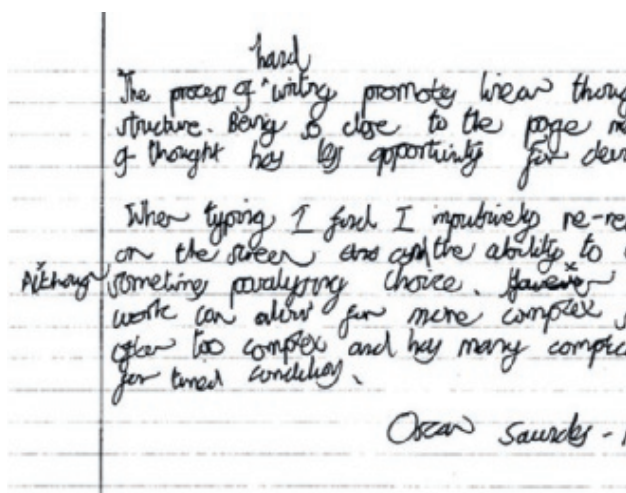 hand
The process of ^ writing promotes linear thoug
structure. Being so close to the page m
of thought has less opportunity for dev
When typing I find I impulsively re-re
on the screen and the ability to
Although sometimes paralysing choice. However
work can allow for more complex
often too complex and has many compl
for timed conditions.
Oscar Saunders -